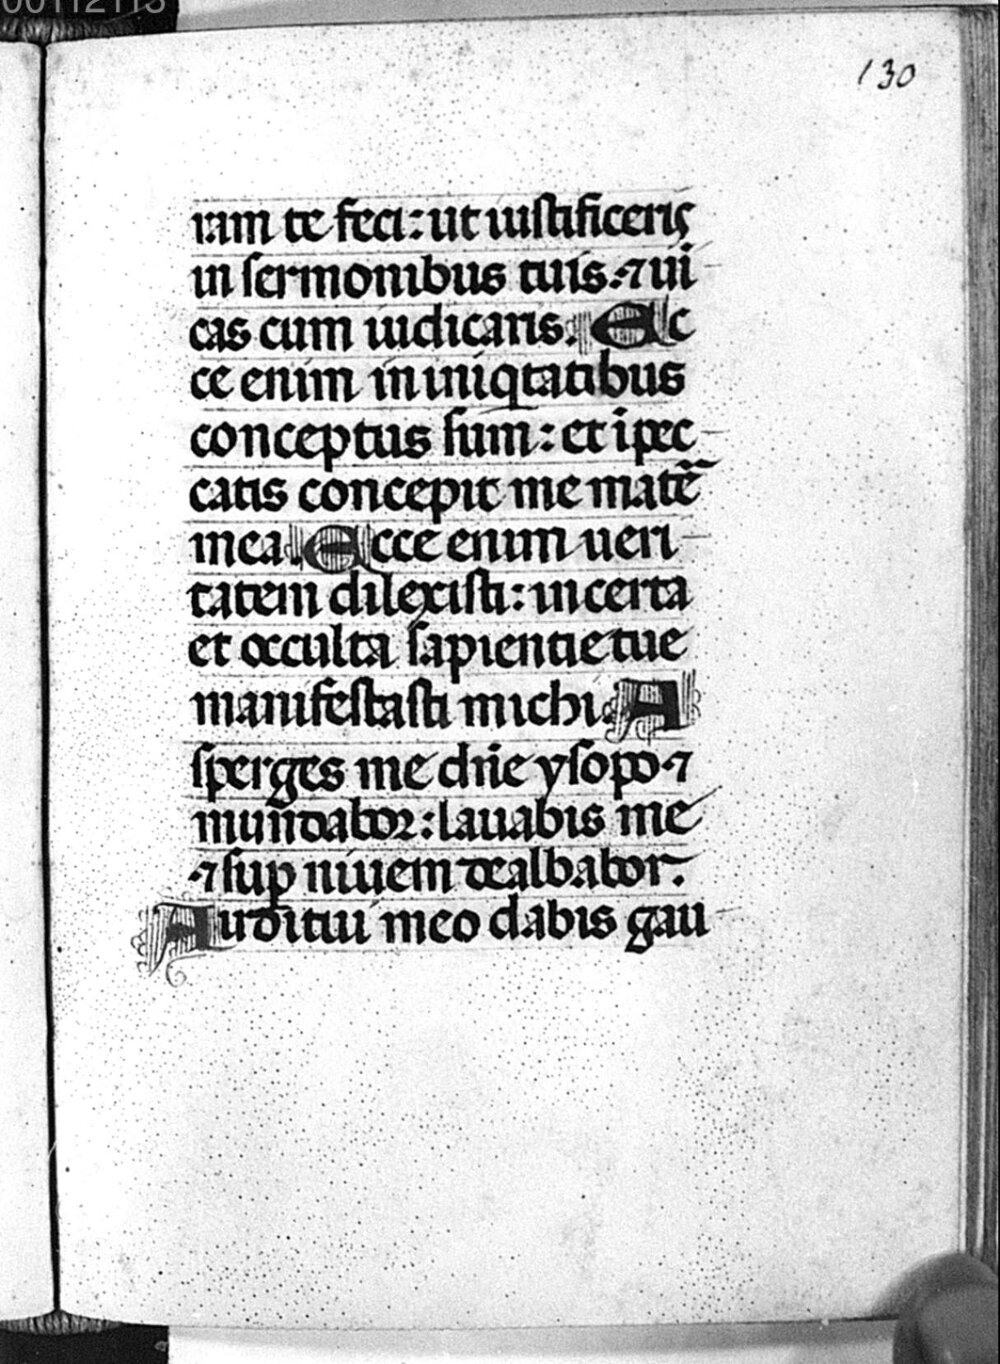 00112113
130
ram te feci: ut iustificeris
in sermonibus tuis. ⁊ ui
cas cum iudicaris. Ec
ce enim in iniqtatibus
conceptus sum: et i pec
catis concepit me mate᷑
mea. Ecce enim ueri
tatem dilexisti: incerta
et occulta sapientie tue
manifestasti michi. A
sperges me dn̄e ysopo ⁊
mundabor: lauabis me
⁊ sup niuem dealbabor.
Auditui meo dabis gau